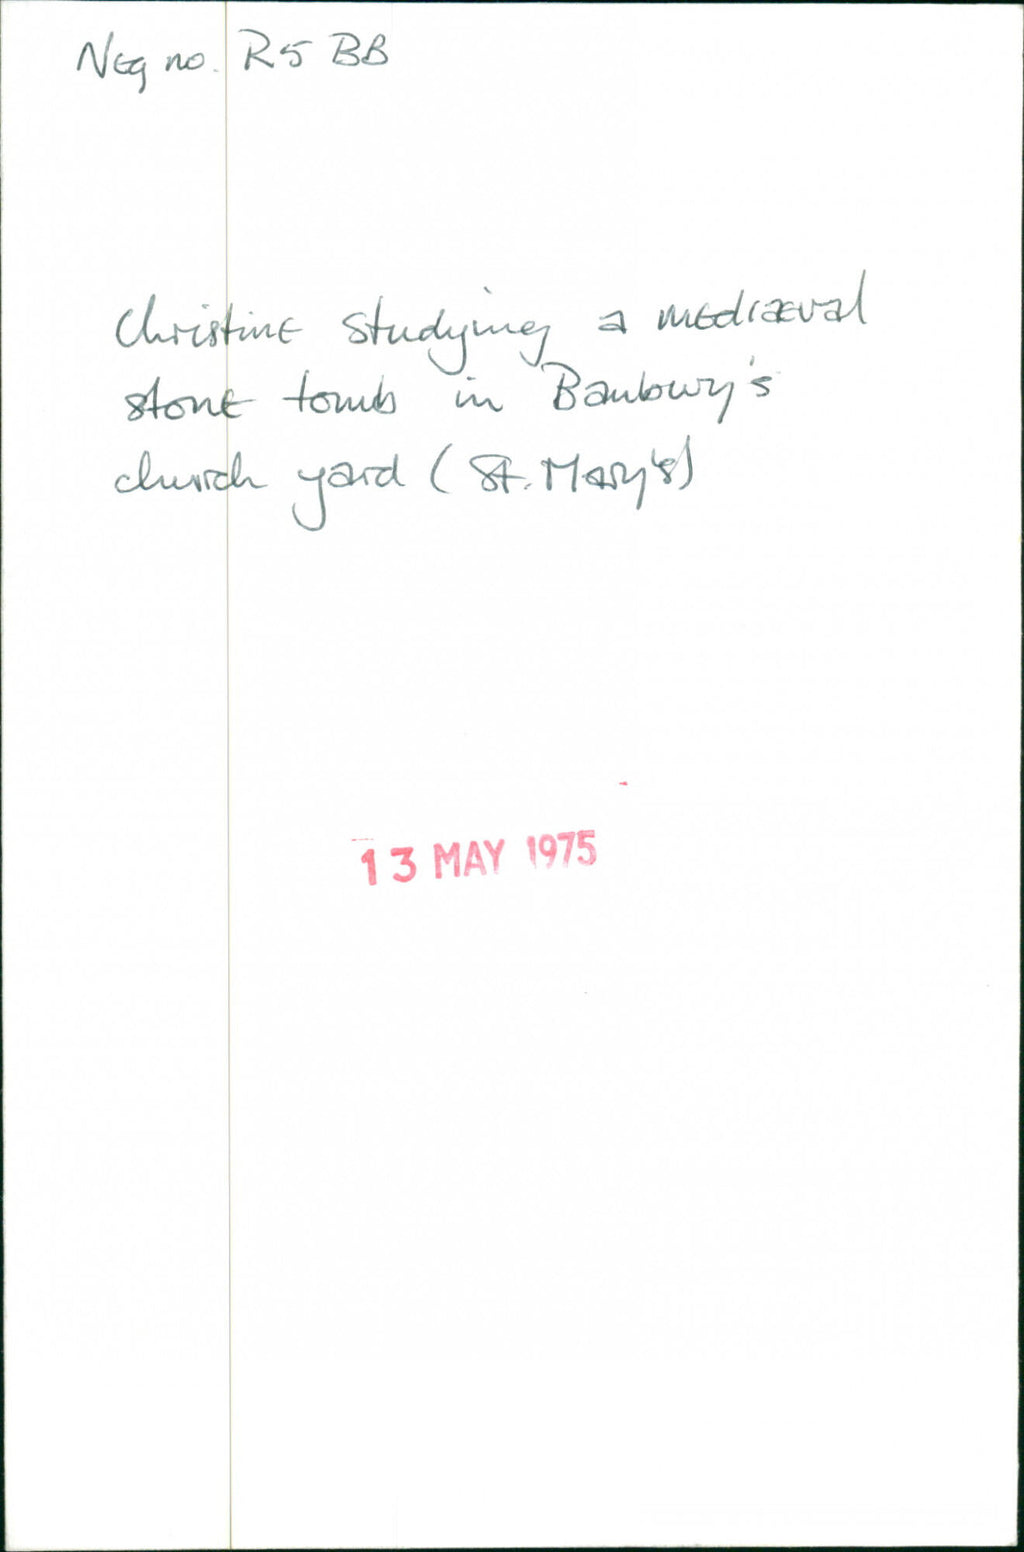 Neg no. R5 BB
Christine studying a mediæval
stone tomb in Banbury's
church yard (St. Mary's)
13 MAY 1975